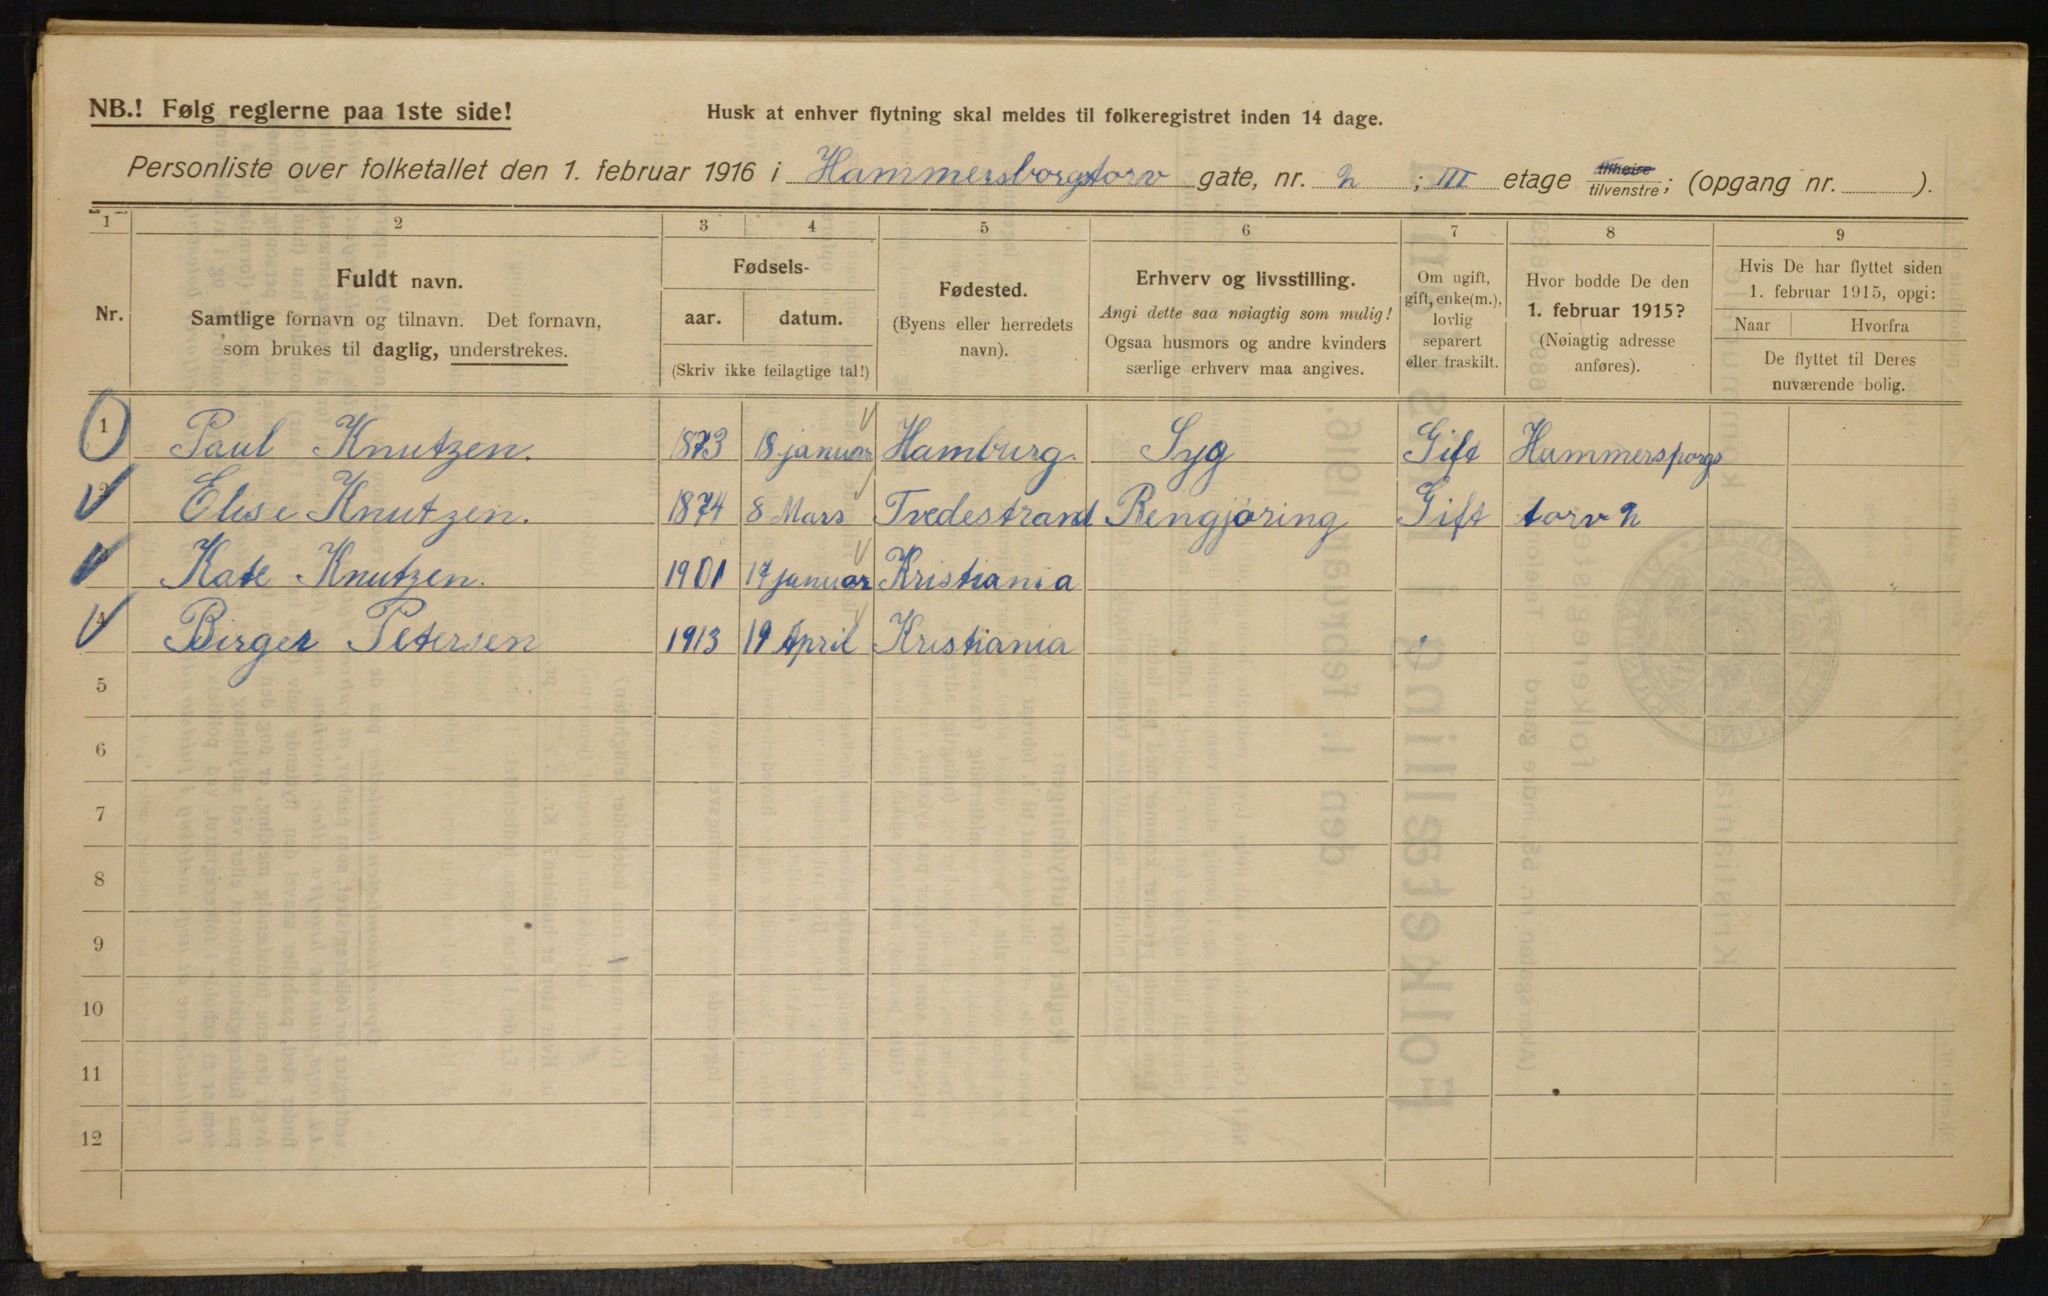 NB.! Følg reglerne paa 1ste side!
Husk at enhver flytning skal meldes til folkeregistret inden 14 dage.
Personliste over folketallet den 1. februar 1916 i Hammersborgstorv gate, nr. 2 ; III etage tilhøire tilvenstre; (opgang nr. ).
1 2 3 4 5 6 7 8 9
Nr.
Fuldt navn.
Samtlige fornavn og tilnavn. Det fornavn,
som brukes til daglig, understrekes.
Fødsels-
aar. datum.
(Skriv ikke feilagtige tal!)
Fødested.
(Byens eller herredets
navn).
Erhverv og livsstilling.
Angi dette saa nøiagtig som mulig!
Ogsaa husmors og andre kvinders
særlige erhverv maa angives.
Om ugift,
gift, enke(m.),
lovlig
separert
eller fraskilt.
Hvor bodde De den
1. februar 1915?
(Nøiagtig adresse
anføres).
Hvis De har flyttet siden
1. februar 1915, opgi:
Naar Hvorfra
De flyttet til Deres
nuværende bolig.
1 Paul Knutzen. 1873 18 januar Hamburg. Syg Gift Hammersporgs
2 Elise Knutzen. 1874 8 Mars Tvedestrand Rengjøring Gift torv 2
3 Kate Knutzen. 1901 17 januar Kristiania
4 Birger Petersen 1913 19 April Kristiania
5
6
7
8
9
10
11
12